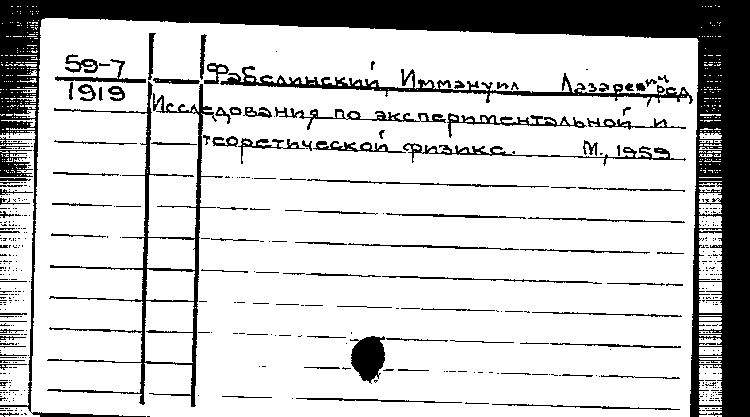 59-7 Фабелинский, Иммануил Лазаревич, ред.
1919 Исследования по экспериментальной и
теоретической физике. М., 1959